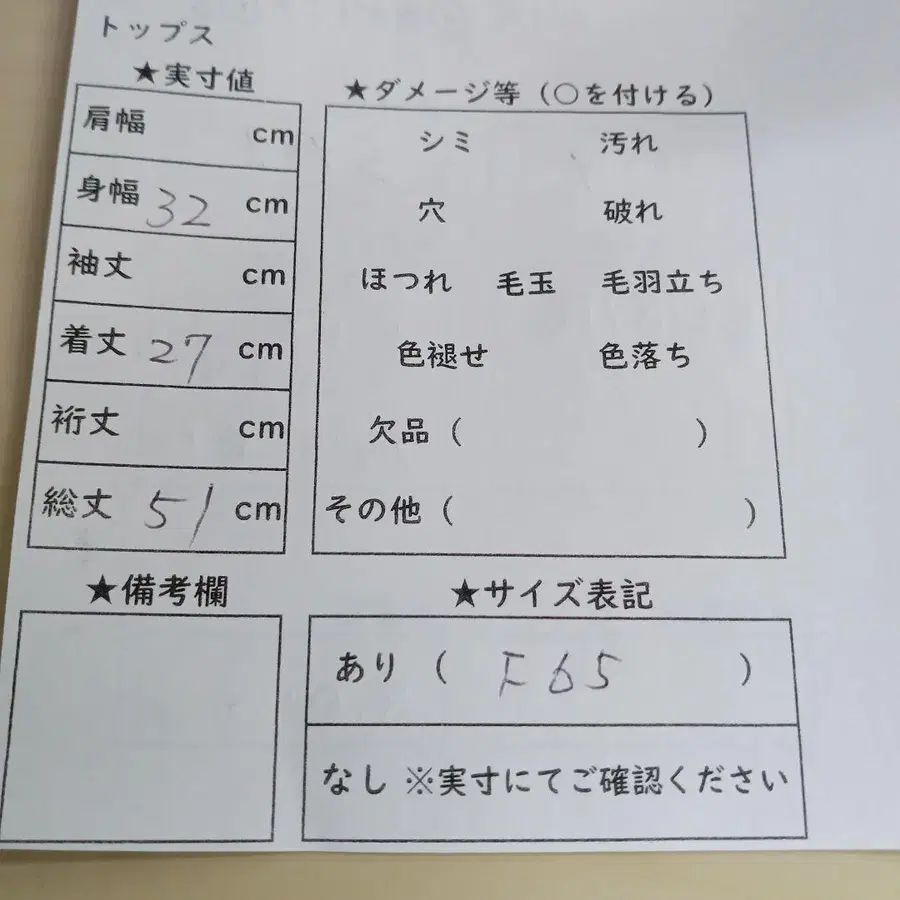 トップス
★実寸値
肩幅 cm
身幅 32 cm
袖丈 cm
着丈 27 cm
裄丈 cm
総丈 51 cm
★ダメージ等（○を付ける）
シミ 汚れ
穴 破れ
ほつれ 毛玉 毛羽立ち
色褪せ 色落ち
欠品（ ）
その他（ ）
★備考欄
★サイズ表記
あり（ F65 ）
なし ※実寸にてご確認ください